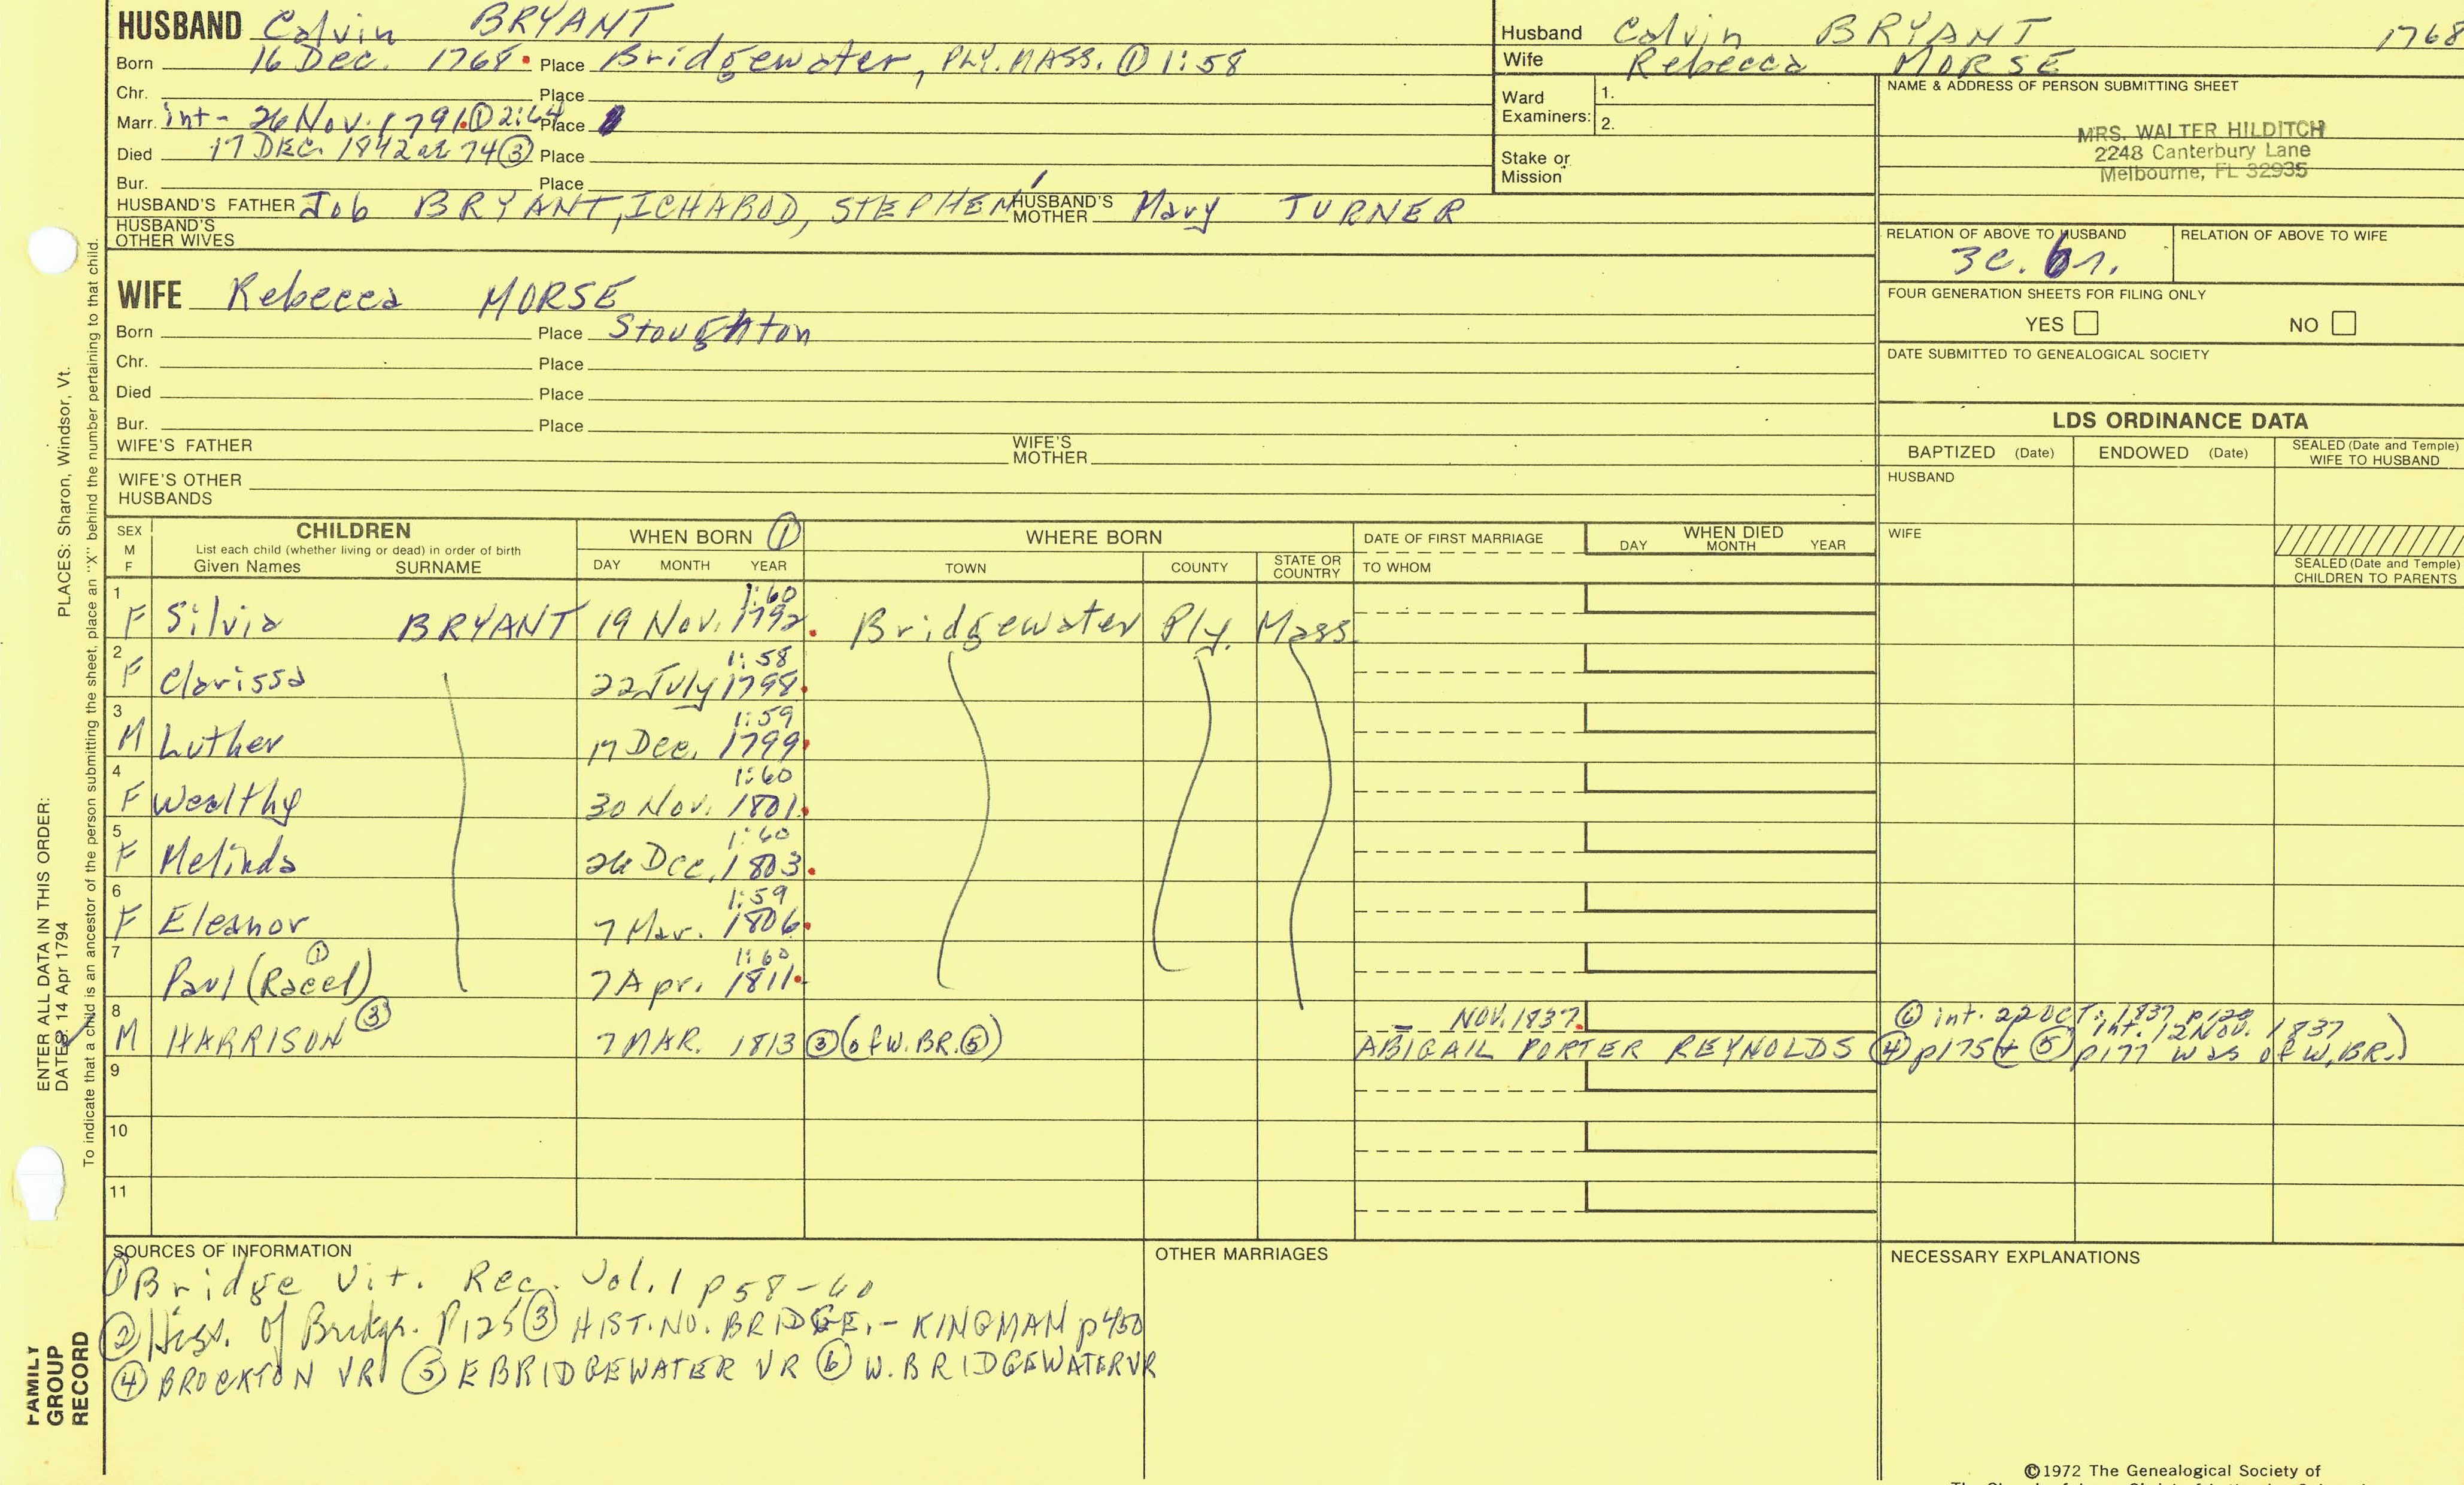 HUSBAND Calvin BRYANT
Born 16 Dec. 1768. Place Bridgewater, PLY. MASS. ① 1:58
Chr. Place
Marr. int - 26 Nov. 1791. ① 2:64 Place
Died 17 DEC. 1842 ae 74 ③ Place
Bur. Place
HUSBAND'S FATHER Job BRYANT, ICHABOD, STEPHEN HUSBAND'S MOTHER Mary TURNER
HUSBAND'S OTHER WIVES
Husband Calvin BRYANT 1768
Wife Rebecca MORSE
Ward Examiners: 1.
2.
Stake or Mission
NAME & ADDRESS OF PERSON SUBMITTING SHEET
MRS. WALTER HILDITCH
2248 Canterbury Lane
Melbourne, FL 32935
RELATION OF ABOVE TO HUSBAND RELATION OF ABOVE TO WIFE
3c. 6r.
FOUR GENERATION SHEETS FOR FILING ONLY
YES NO
DATE SUBMITTED TO GENEALOGICAL SOCIETY
WIFE Rebecca MORSE
Born Place Stoughton
Chr. Place
Died Place
Bur. Place
WIFE'S FATHER WIFE'S MOTHER
WIFE'S OTHER HUSBANDS
LDS ORDINANCE DATA
BAPTIZED (Date) ENDOWED (Date) SEALED (Date and Temple) WIFE TO HUSBAND
HUSBAND
WIFE
SEALED (Date and Temple) CHILDREN TO PARENTS
SEX M F CHILDREN List each child (whether living or dead) in order of birth Given Names SURNAME
WHEN BORN ① DAY MONTH YEAR
WHERE BORN TOWN COUNTY STATE OR COUNTRY
DATE OF FIRST MARRIAGE TO WHOM
WHEN DIED DAY MONTH YEAR
1 F Silvia BRYANT 19 Nov. 1792. 1:60 Bridgewater Ply. Mass
2 F Clarissa 22 July 1798. 1:58
3 M Luther 17 Dec. 1799. 1:59
4 F Wealthy 30 Nov. 1801. 1:60
5 F Melinda 26 Dec. 1803. 1:60
6 F Eleanor 7 Mar. 1806. 1:59
7 Paul (Racel) ① 7 Apr. 1811. 1:60
8 M HARRISON ③ 7 MAR. 1813 ③ (of W. BR. ⑤) — NOV. 1837. ⑥ int. 22 OCT. 1837
ABIGAIL PORTER REYNOLDS ④ p175 + ⑤ p177 int. 12 Nov. 1837 was of W. BR.)
9
10
11
SOURCES OF INFORMATION
① Bridge Vit. Rec. Vol. 1 p 58-60
② Hist. of Bridge. P125 ③ HIST. NO. BRIDGE. - KINGMAN p450
④ BROCKTON VR ⑤ E BRIDGEWATER VR ⑥ W. BRIDGEWATER VR
OTHER MARRIAGES
NECESSARY EXPLANATIONS
©1972 The Genealogical Society of
ENTER ALL DATA IN THIS ORDER:
DATES: 14 Apr 1794
PLACES: Sharon, Windsor, Vt.
To indicate that a child is an ancestor of the person submitting the sheet, place an "X" behind the number pertaining to that child.
FAMILY
GROUP
RECORD